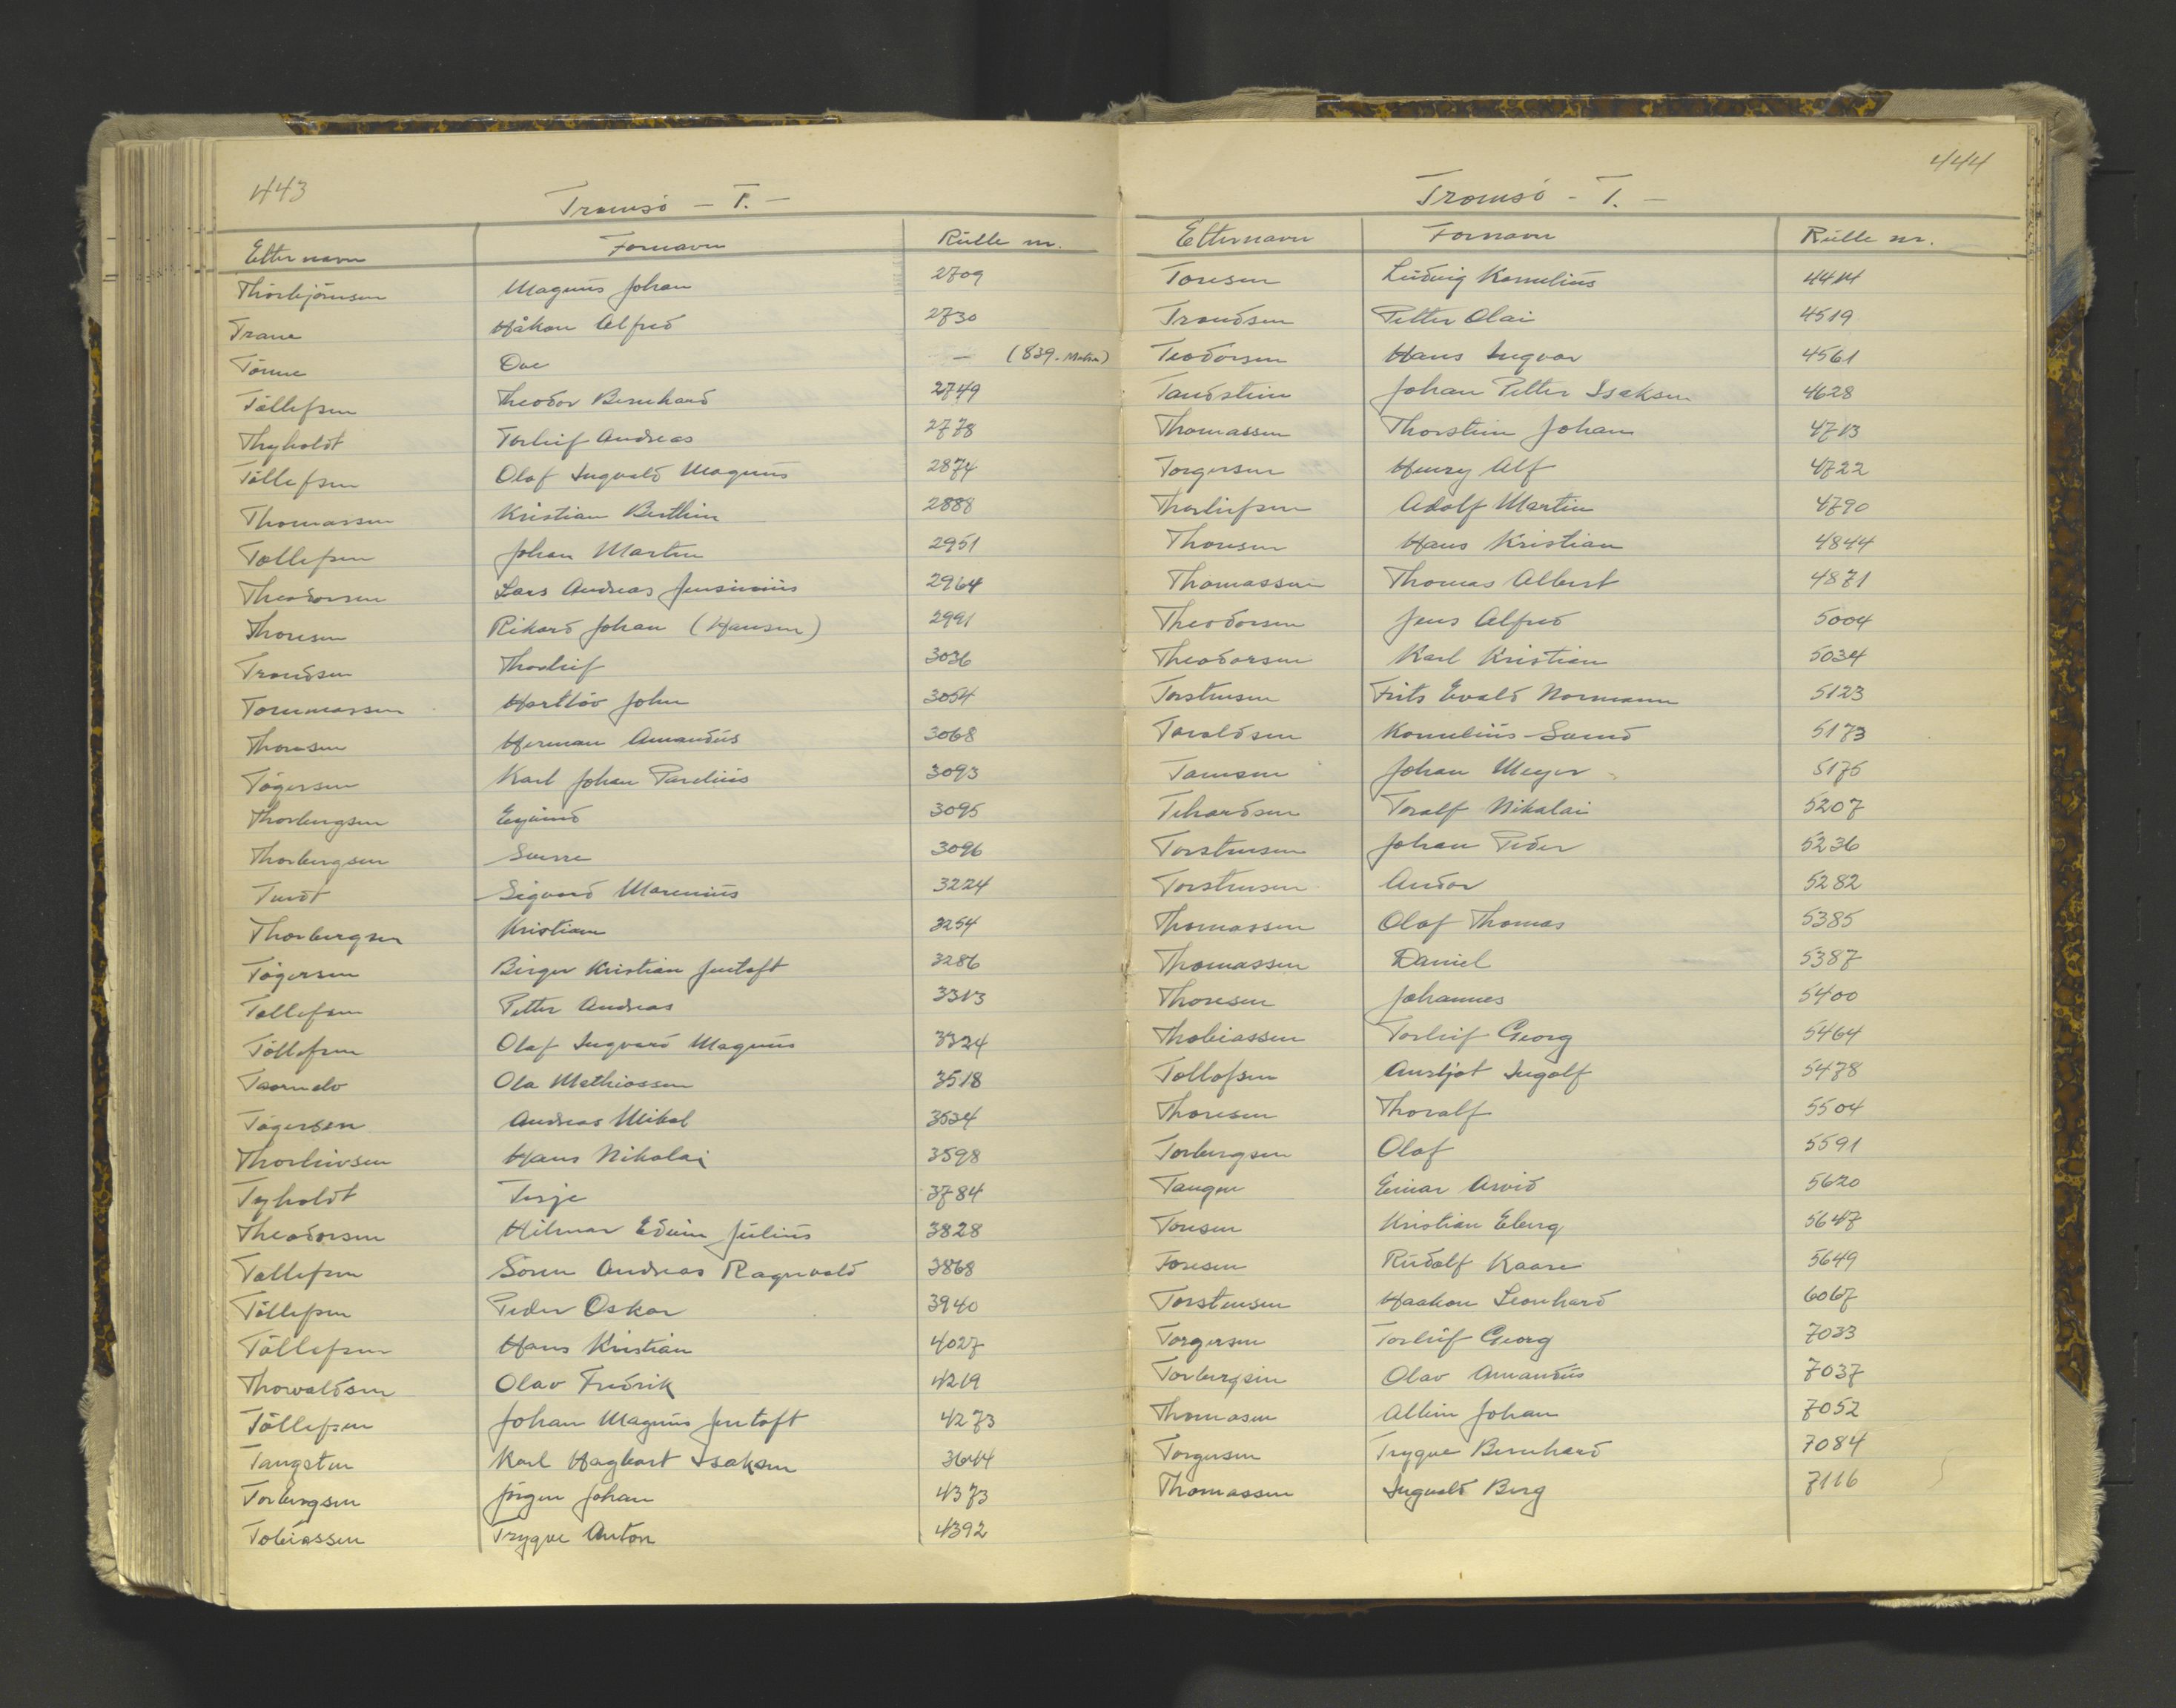 443
Tromsö - T. -
Etternavn Fornavn Rulle nr.
Thorbjörnsen Magnus Johan 2709
Trane Håkon Alfred 2730
Tönne Ove - (839. Maskin)
Töllefsen Theodor Bernhard 2749
Thyholdt Torleif Andreas 2778
Töllefsen Olaf Ingvald Magnus 2874
Thomassen Kristian Berthin 2888
Tollefsen Johan Martin 2951
Theodorsen Lars Andreas Jensinius 2964
Thoresen Rikard Johan (Hansen) 2991
Trondsen Thorleif 3036
Tommassen Hartlöv John 3054
Thoresen Herman Amandus 3068
Tögersen Karl Johan Parelius 3093
Thorbergsen Eyvind 3095
Thorbergsen Sverre 3096
Tundt Sigvard Marenius 3224
Thorbergsen Kristian 3254
Tögersen Birger Kristian Jentoft 3286
Tollefsen Petter Andreas 3313
Töllefsen Olaf Ingvard Magnus 3324
Taornelo Ola Mathiassen 3518
Tögersen Andreas Mikal 3534
Thorleivsen Hans Nikolai 3598
Tyholdt Terje 3784
Theodorsen Hilmar Edvin Julius 3828
Tollefsen Sören Andreas Ragnvald 3868
Töllefsen Peder Oskar 3940
Töllefsen Hans Kristian 4027
Thorvaldsen Olav Fredrik 4219
Töllefsen Johan Magnus Jentoft 4273
Tangsten Karl Hagbart Isaksen 3644
Torbergsen Jörgen Johan 4373
Tobiassen Trygve Anton 4392
444
Tromsö - T. -
Etternavn Fornavn Rulle nr.
Toresen Ludvig Kornelius 4414
Trondsen Petter Olai 4519
Teodorsen Hans Ingvar 4561
Tandstein Johan Petter Isaksen 4628
Thomassen Thorstein Johan 4713
Torgersen Henry Alf 4722
Thorleifsen Adolf Martin 4790
Thoresen Hans Kristian 4844
Thomassen Thomas Albert 4871
Theodorsen Jens Alfred 5004
Theodorsen Karl Kristian 5034
Torstensen Frits Evald Normann 5123
Toraldsen Kornelius Svend 5173
Tamsen Johan Meyer 5175
Tehardsen Toralf Nikolai 5207
Torstensen Johan Peder 5236
Torstensen Andor 5282
Thomassen Olaf Thomas 5385
Thomassen Daniel 5387
Thoresen Johannes 5400
Thobiassen Torleif Georg 5464
Tollofsen Ansljot Ingolf 5478
Thoresen Thoralf 5504
Torbergsen Olaf 5591
Tangen Einar Arvid 5620
Toresen Kristian Eberg 5647
Toresen Rudolf Kaare 5649
Torstensen Haakon Leonhard 6067
Torgersen Torleif Georg 7033
Torbergsen Olav Amandus 7037
Thomasen Albin Johan 7052
Torgersen Trygve Bernhard 7084
Thomassen Ingvald Berg 7116